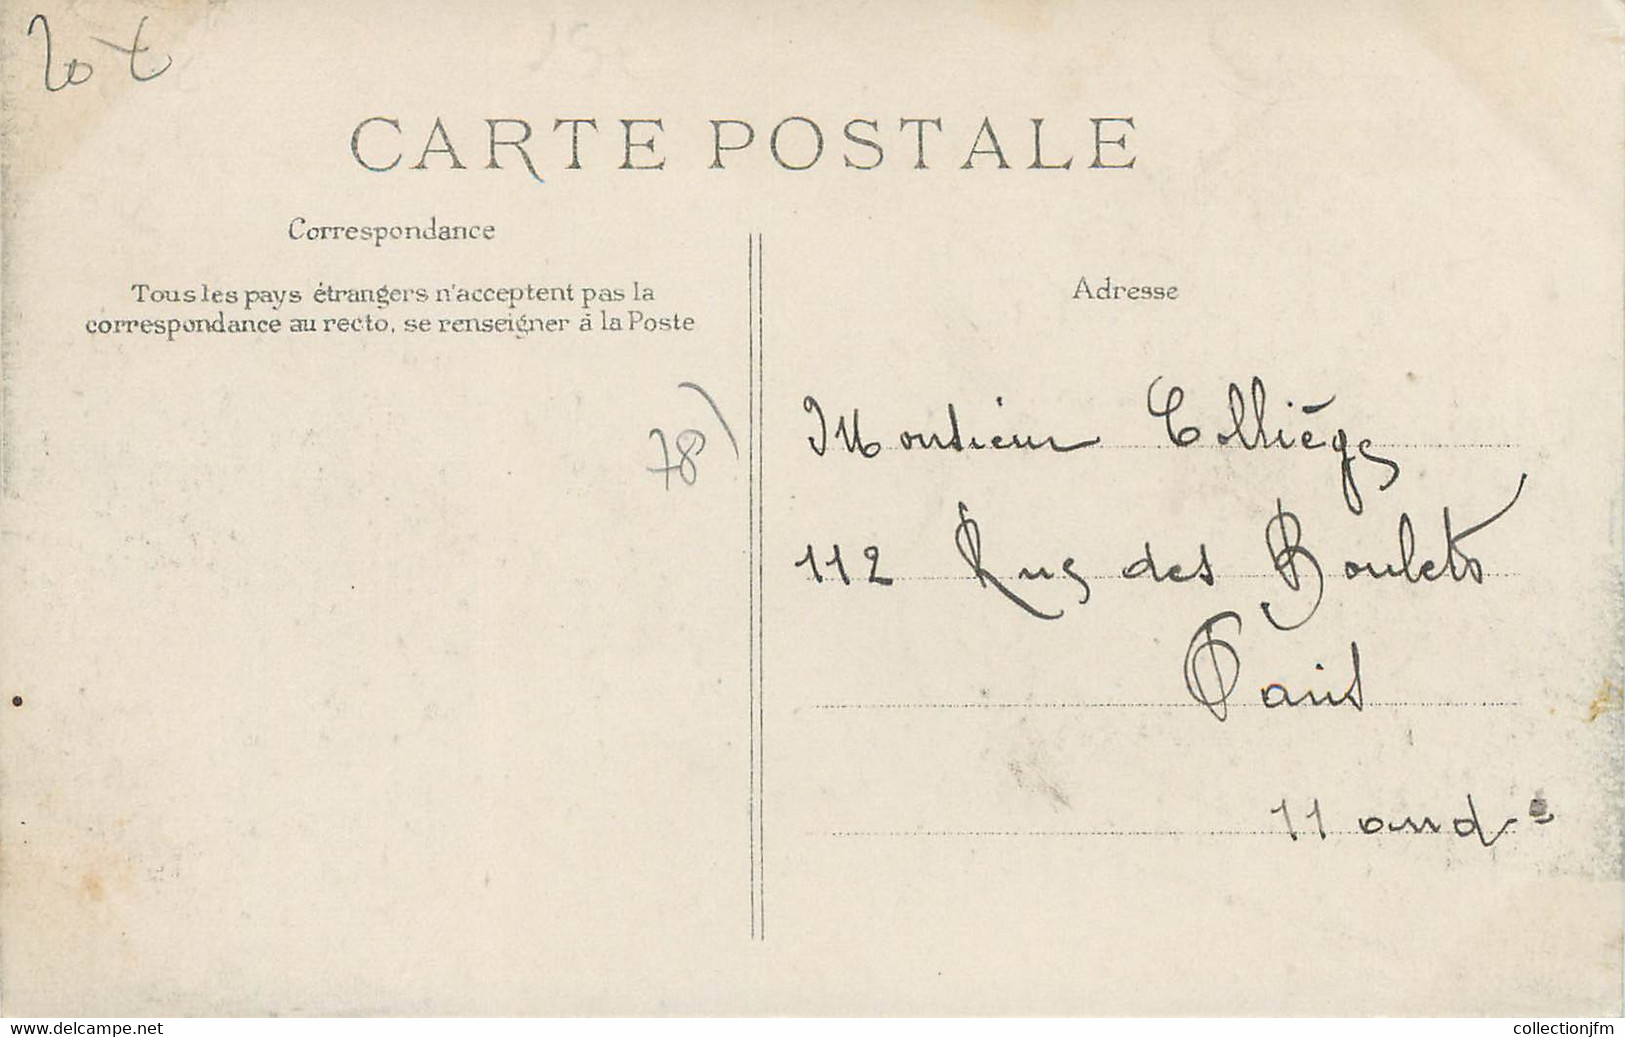 20 €
CARTE POSTALE
Correspondance
Tous les pays étrangers n'acceptent pas la
correspondance au recto, se renseigner à la Poste
78)
Adresse
Monsieur Colliège
112 Rue des Boulets
Paris
11 arrd-e
www.delcampe.net
collectionjfm